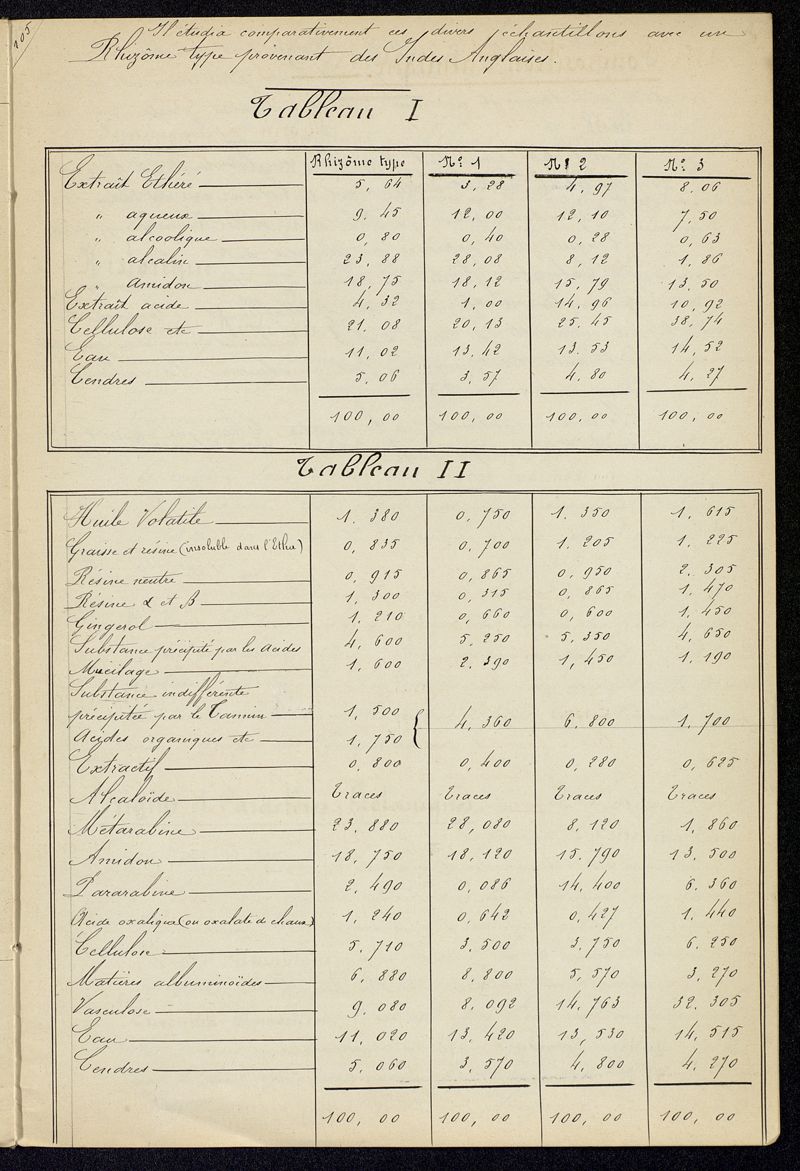 105
Il étudia comparativement ces divers échantillons avec un
Rhizôme type provenant des Indes Anglaises.
Tableau I
Rhizôme type N° 1 N° 2 N° 3
Extrait Ethéré 5,64 3,28 4,97 8.06
" aqueux 9.45 12,00 12,10 7,50
" alcoolique 0,80 0,40 0,28 0,63
" alcalin 23,88 28,08 8,12 1,86
" amidon 18,75 18,12 15,79 13.50
Extrait acide 4,32 1,00 14,96 10,92
Cellulose etc 21.08 20,13 25.45 38,74
Eau 11,02 13,42 13.53 14,52
Cendres 5,06 3,57 4,80 4,27
100,00 100,00 100,00 100,00
Tableau II
Huile Volatile 1.380 0,750 1.350 1,615
Graisse et résine (insoluble dans l'Ether) 0,835 0,700 1.205 1,225
Résine neutre 0,915 0,865 0,950 2.305
Résine α et β 1,300 0,315 0,865 1,470
Gingerol 1,210 0,660 0,600 1,450
Substance précipité par les acides 4,600 5,250 5,350 4,650
Mucilage 1,600 2.390 1,450 1.190
Substance indifférente
précipitée par le Tannin 1,500 { 4,360 6,800 1,700
Acides organiques etc 1,750
Extractif 0,800 0,400 0,280 0,625
Alcaloïde traces traces traces traces
Métarabine 23.880 28,080 8,120 1,860
Amidon 18,750 18,120 15.790 13,500
Pararabine 2,490 0,086 14,400 6.360
Acide oxalique (ou oxalate de chaux) 1,240 0,642 0,427 1,440
Cellulose 5,710 3,500 3,750 6.250
Matières albuminoïdes 6,880 8,800 5,570 3,270
Vasculose 9,080 8.092 14,763 32.305
Eau 11,020 13,420 13,530 14,515
Cendres 5,060 3,570 4,800 4,270
100,00 100,00 100,00 100,00